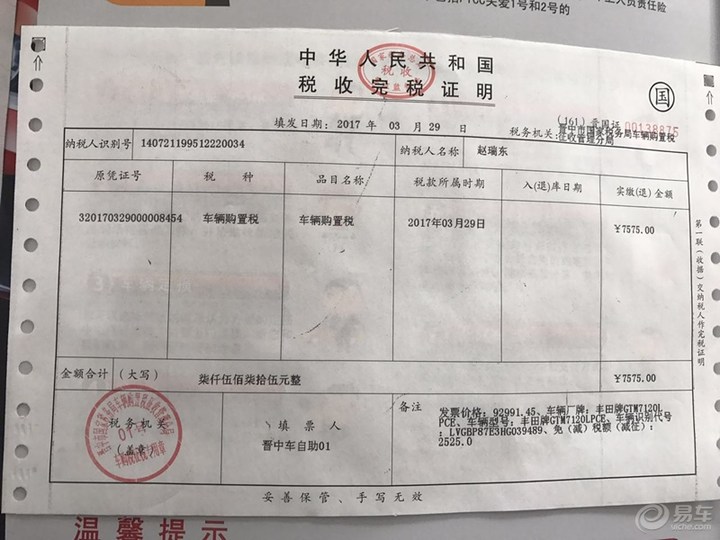 关爱1号和2号的
工人员责任险
中华人民共和国
税收
税收完税证明
国
填发日期：2017 年 03 月 29 日
(161)晋国证 00138875
税务机关:晋中市国家税务局车辆购置税
征收管理分局
纳税人识别号 140721199512220034 纳税人名称 赵瑞东
原凭证号 税 种 品目名称 税款所属时期 入(退)库日期 实缴(退)金额
320170329000008454 车辆购置税 车辆购置税 2017年03月29日 ￥7575.00
第一联(收据)交纳税人作完税证明
金额合计 (大写) 柒仟伍佰柒拾伍元整 ￥7575.00
税务机关
(盖章)
填 票 人
晋中车自助01
备注
发票价格: 92991.45, 车辆厂牌: 丰田牌GTM7120L
PCE, 车辆型号: 丰田牌GTM7120LPCE, 车辆识别代号
: LVGBP87E3HG039489, 免(减)税额(减征):
2525.0
妥善保管、手写无效
温馨提示
易车
yiche.com